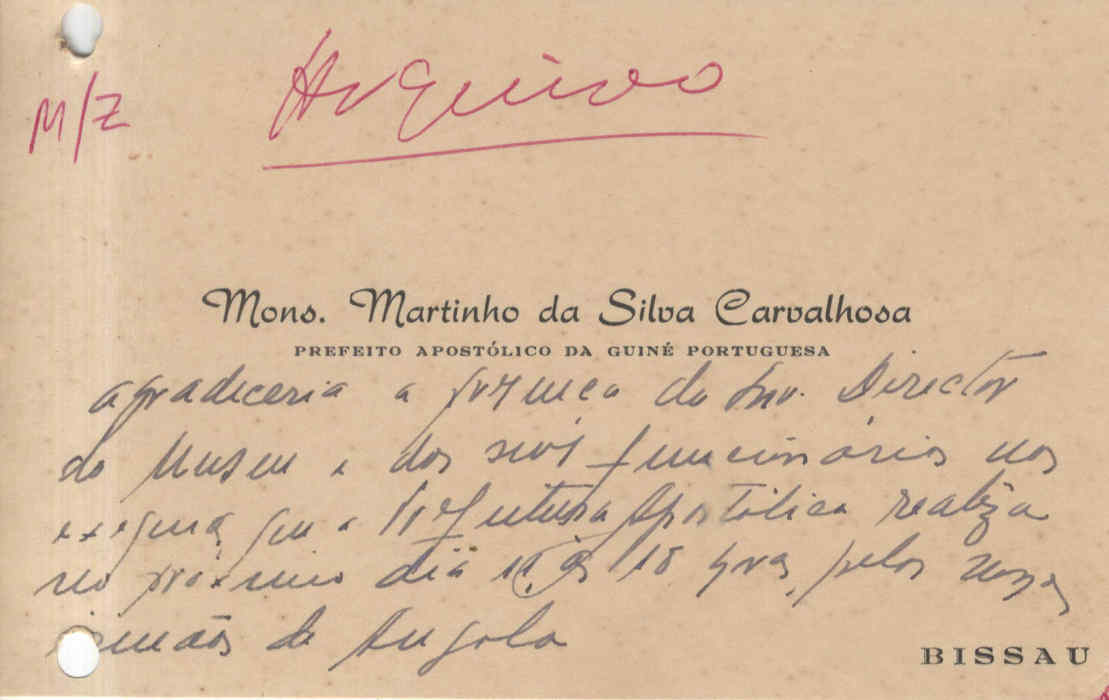 M/Z
Arquivo
Mons. Martinho da Silva Carvalhosa
PREFEITO APOSTÓLICO DA GUINÉ PORTUGUESA
agradeceria a presença do Snr. Director
do Museu e dos seus funcionários nas
exéquias que a Prefeitura Apostólica realiza
no próximo dia às 18 horas, pelos nossos
irmãos de Angola
BISSAU